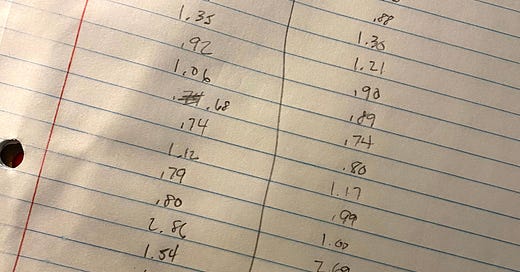 1.35 .88
.92 1.30
1.06 1.21
.68 .90
.74 .89
1.12 .74
.79 .80
.80 1.17
2.86 .99
1.54 1.00
2.69